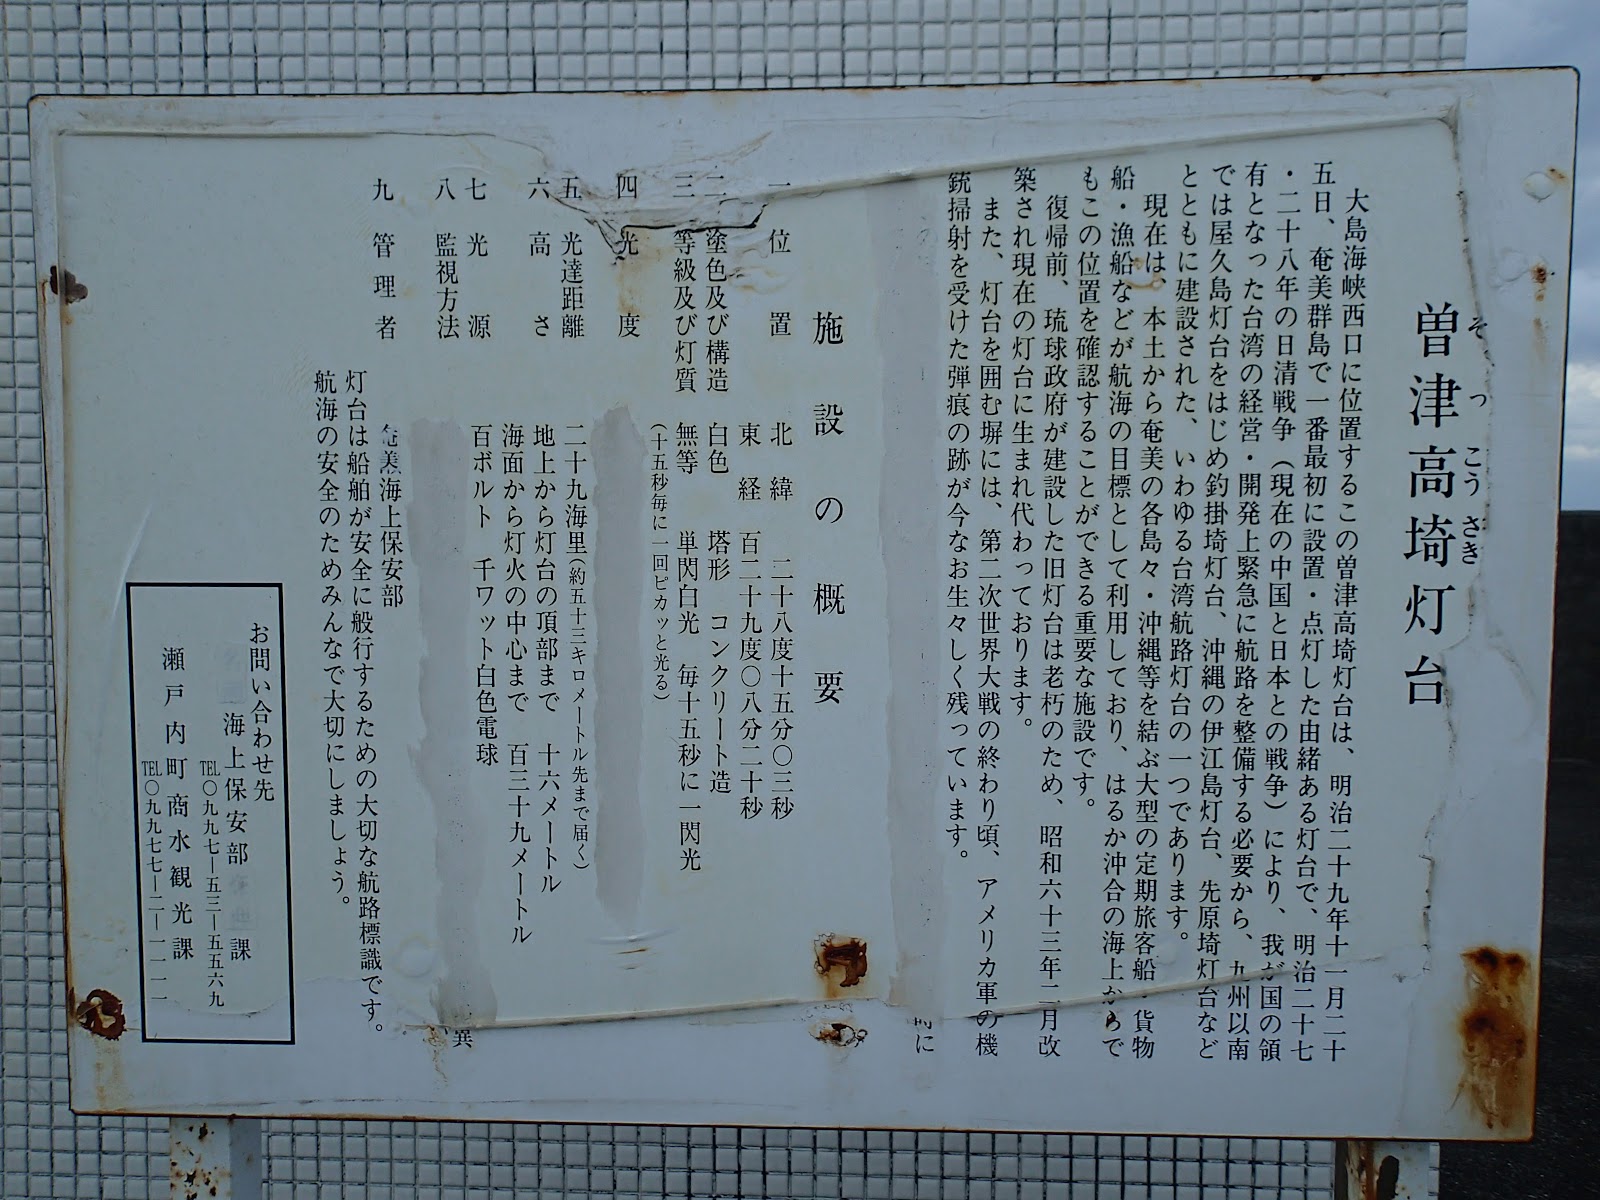 曽津高埼灯台
そっ こうさき
大島海峡西口に位置するこの曽津高埼灯台は、明治二十九年十一月二十
五日、奄美群島で一番最初に設置・点灯した由緒ある灯台で、明治二十七
・二十八年の日清戦争（現在の中国と日本との戦争）により、我が国の領
有となった台湾の経営・開発上緊急に航路を整備する必要から、九州以南
では屋久島灯台をはじめ釣掛埼灯台、沖縄の伊江島灯台、先原埼灯台など
とともに建設された、いわゆる台湾航路灯台の一つであります。
現在は、本土から奄美の各島々・沖縄等を結ぶ大型の定期旅客船・貨物
船・漁船などが航海の目標として利用しており、はるか沖合の海上からで
もこの位置を確認することができる重要な施設です。
復帰前、琉球政府が建設した旧灯台は老朽のため、昭和六十三年二月改
築され現在の灯台に生まれ代わっております。
また、灯台を囲む塀には、第二次世界大戦の終わり頃、アメリカ軍の機
銃掃射を受けた弾痕の跡が今なお生々しく残っています。
に
施設の概要
一 位置 北緯 二十八度十五分〇三秒
東経 百二十九度〇八分二十秒
二 塗色及び構造 白色 塔形 コンクリート造
三 等級及び灯質 無等 単閃白光 毎十五秒に一閃光
（十五秒毎に一回ピカッと光る）
四 光度
五 光達距離 二十九海里（約五十三キロメートル先まで届く）
六 高さ 地上から灯台の頂部まで 十六メートル
海面から灯火の中心まで 百三十九メートル
七 光源 百ボルト 千ワット白色電球
八 監視方法
異
九 管理者 海上保安部
灯台は船舶が安全に般行するための大切な航路標識です。
航海の安全のためみんなで大切にしましょう。
お問い合わせ先
海上保安部 課
TEL〇九九七―五三―五五六九
瀬戸内町商水観光課
TEL〇九九七七―二―一一一一